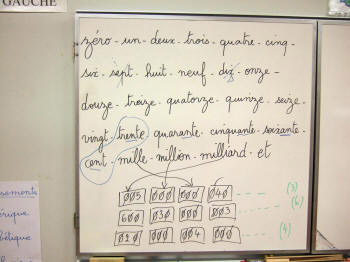 GAUCHE
zéro - un - deux - trois - quatre - cinq -
six - sept - huit - neuf - dix - onze -
douze - treize - quatorze - quinze - seize -
vingt - trente - quarante - cinquante - soixante -
cent - mille - million - milliard - et
005 000 000 040 (3)
600 030 000 003 (6)
020 000 004 000 (4)